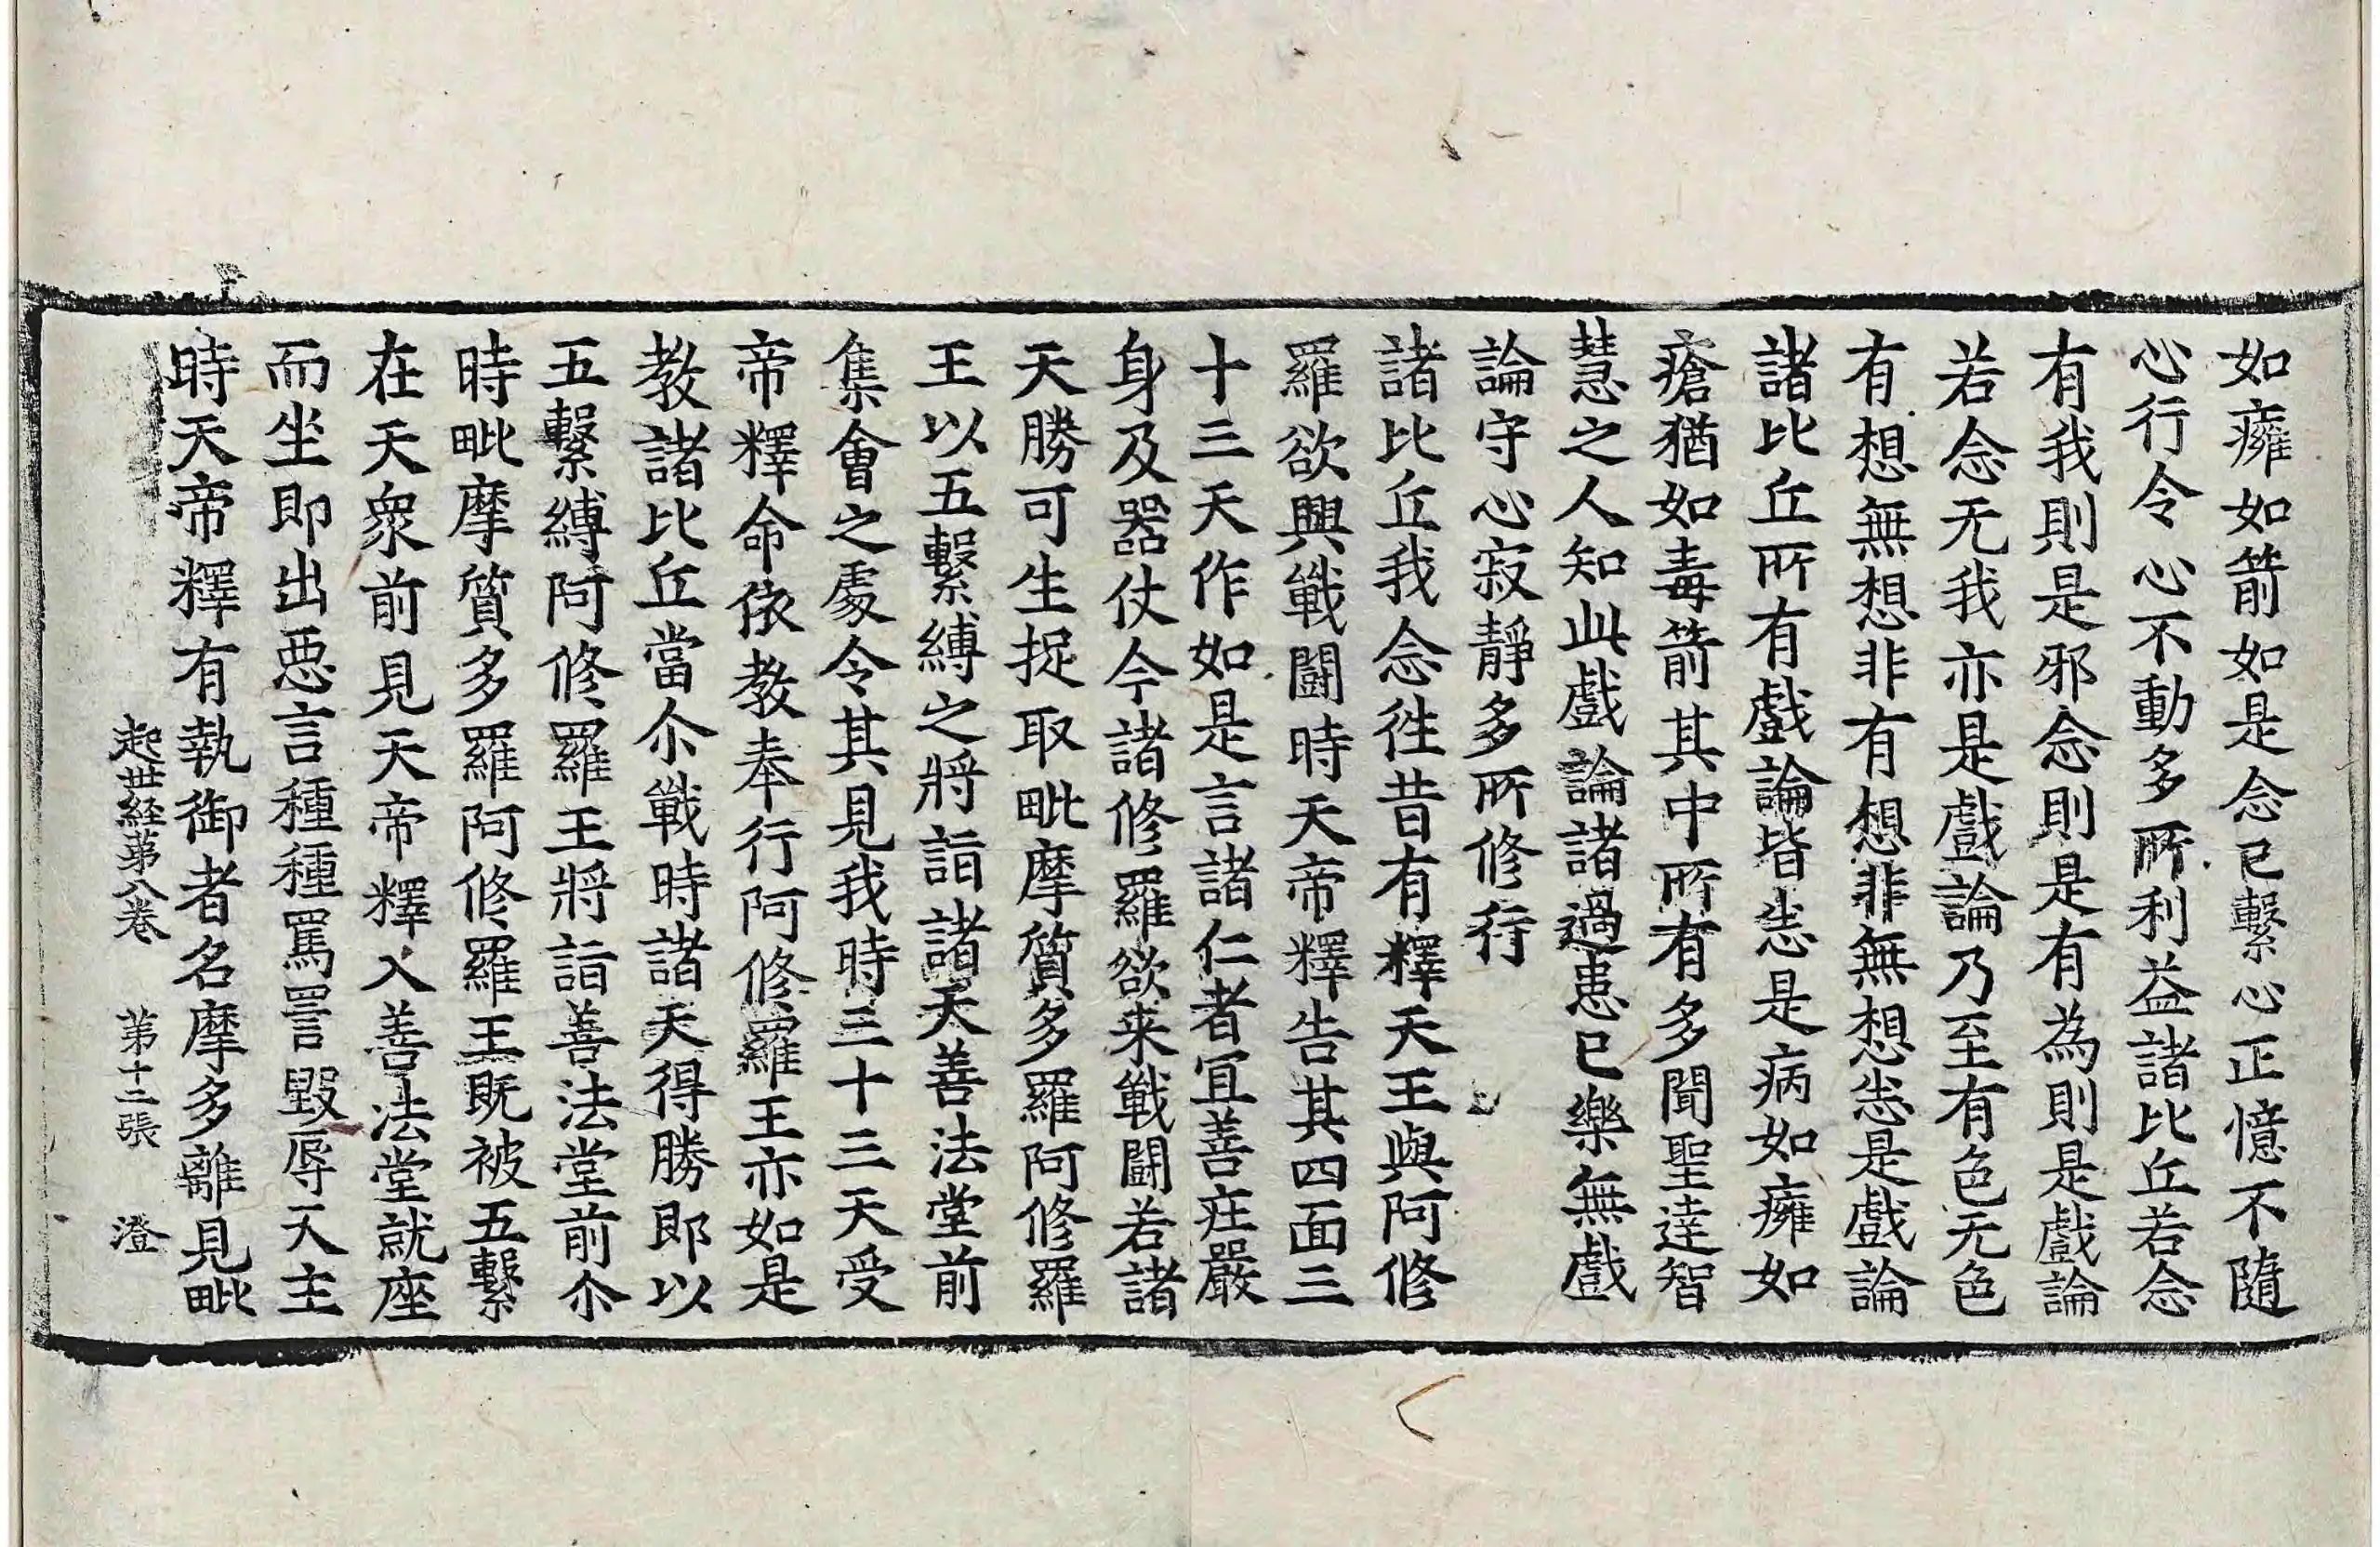 如癕如箭如是念已繫心正憶不隨
心行令心不動多所利益諸比丘若念
有我則是邪念則是有為則是戲論
若念无我亦是戲論乃至有色无色
有想無想非有想非無想恙是戲論
諸比丘所有戲論皆恙是病如癕如
瘡猶如毒箭其中所有多聞聖達智
慧之人知此戲論諸過患已樂無戲
論守心寂靜多所修行
諸比丘我念徃昔有釋天王與阿修
羅欲興戰鬪時天帝釋告其四面三
十三天作如是言諸仁者冝善庄嚴
身及器仗今諸修羅欲来戰鬪若諸
天勝可生捉取毗摩質多羅阿修羅
王以五繫縛之將詣諸天善法堂前
集會之處令其見我時三十三天受
帝釋命依教奉行阿修羅王亦如是
教諸比丘當尒戰時諸天得勝即以
五繫縛阿修羅王將詣善法堂前尒
時毗摩質多羅阿修羅王既被五繫
在天衆前見天帝釋入善法堂就座
而坐即出惡言種種罵詈毀辱天主
時天帝釋有執御者名摩多離見毗
起世経苐八卷 苐十二張 澄